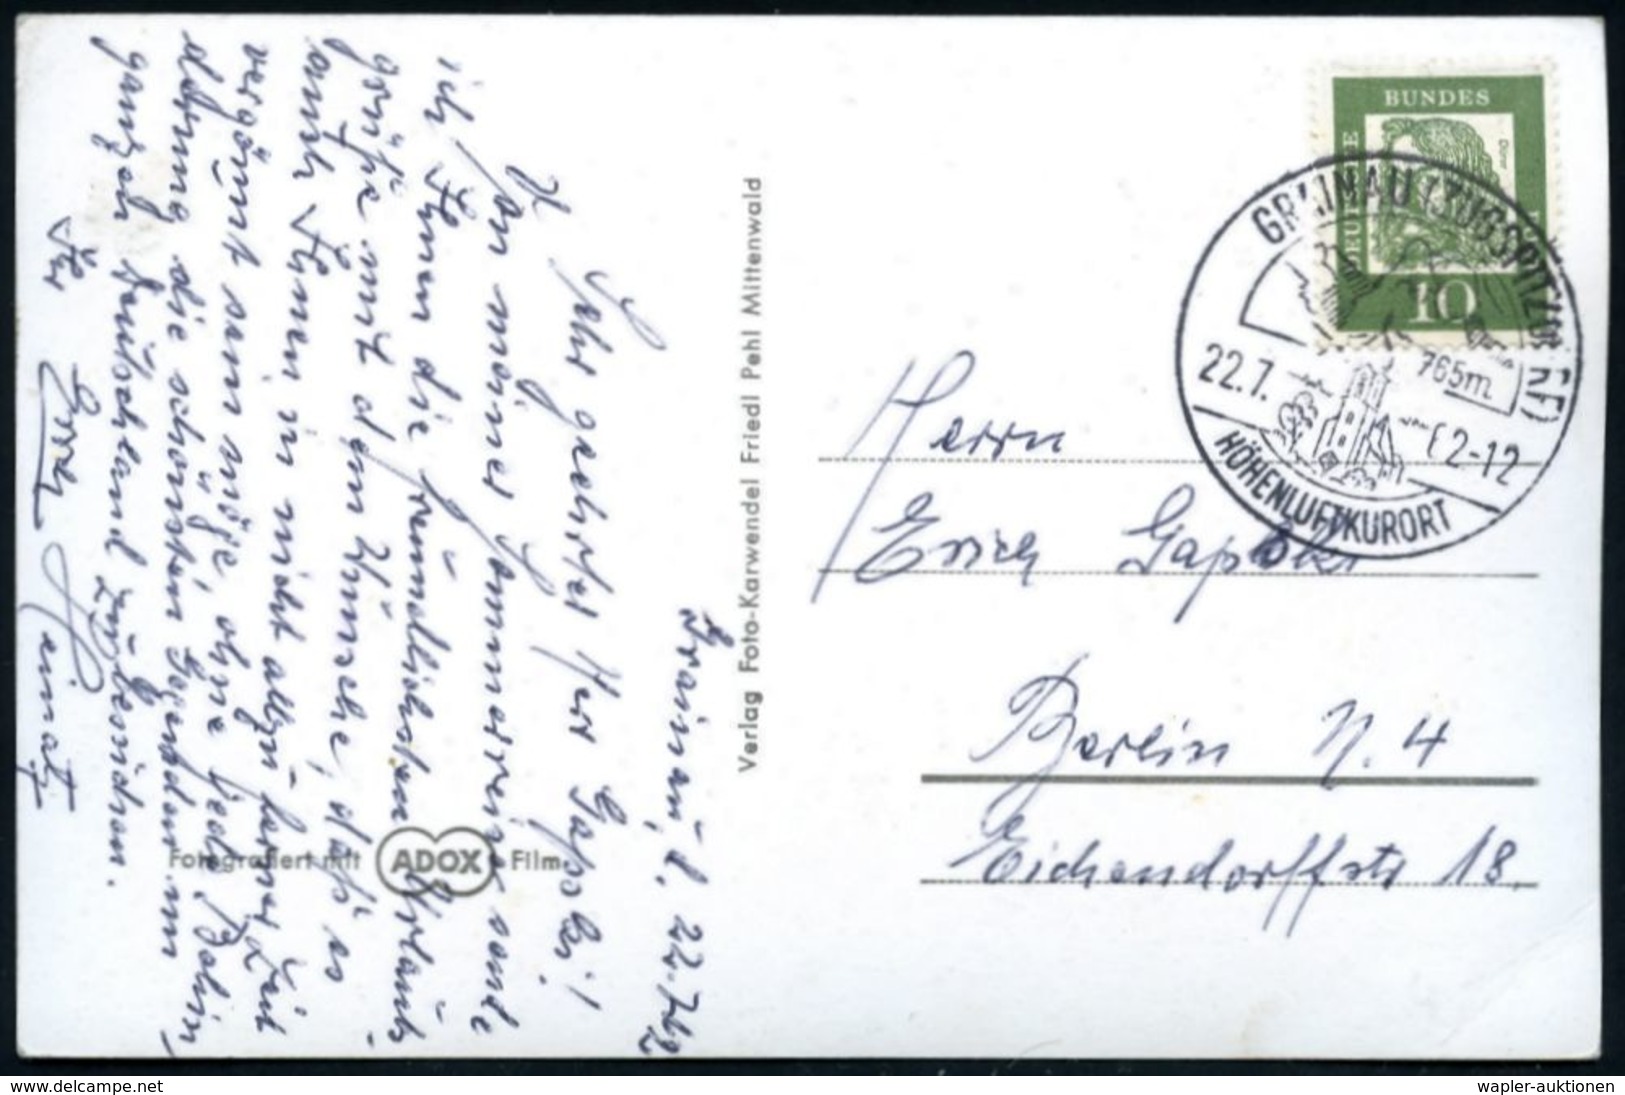 Grainau, d. 22.7.62
Sehr geehrter Herr Gapski!
Von meiner Sommerreise sende
ich Ihnen die freundlichsten Urlaubs-
grüße mit dem Wunsche, daß es
auch Ihnen in nicht allzu ferner Zeit
vergönnt sein möge, ohne Behin-
derung die schönsten Gegenden im
ganzen Deutschland zu bereisen.
Ihr
Verlag Foto-Karwendel Friedl Pehl Mittenwald
Fotografiert mit ADOX Film.
DEUTSCHE BUNDES
Dürer
10
GRAINAU (ZUGSPITZDORF)
765m
22.7.62-12
HÖHENLUFTKURORT
Herrn
Erich Gapski
Berlin N. 4
Eichendorffstr 18.
www.delcampe.net
wapler-auktionen